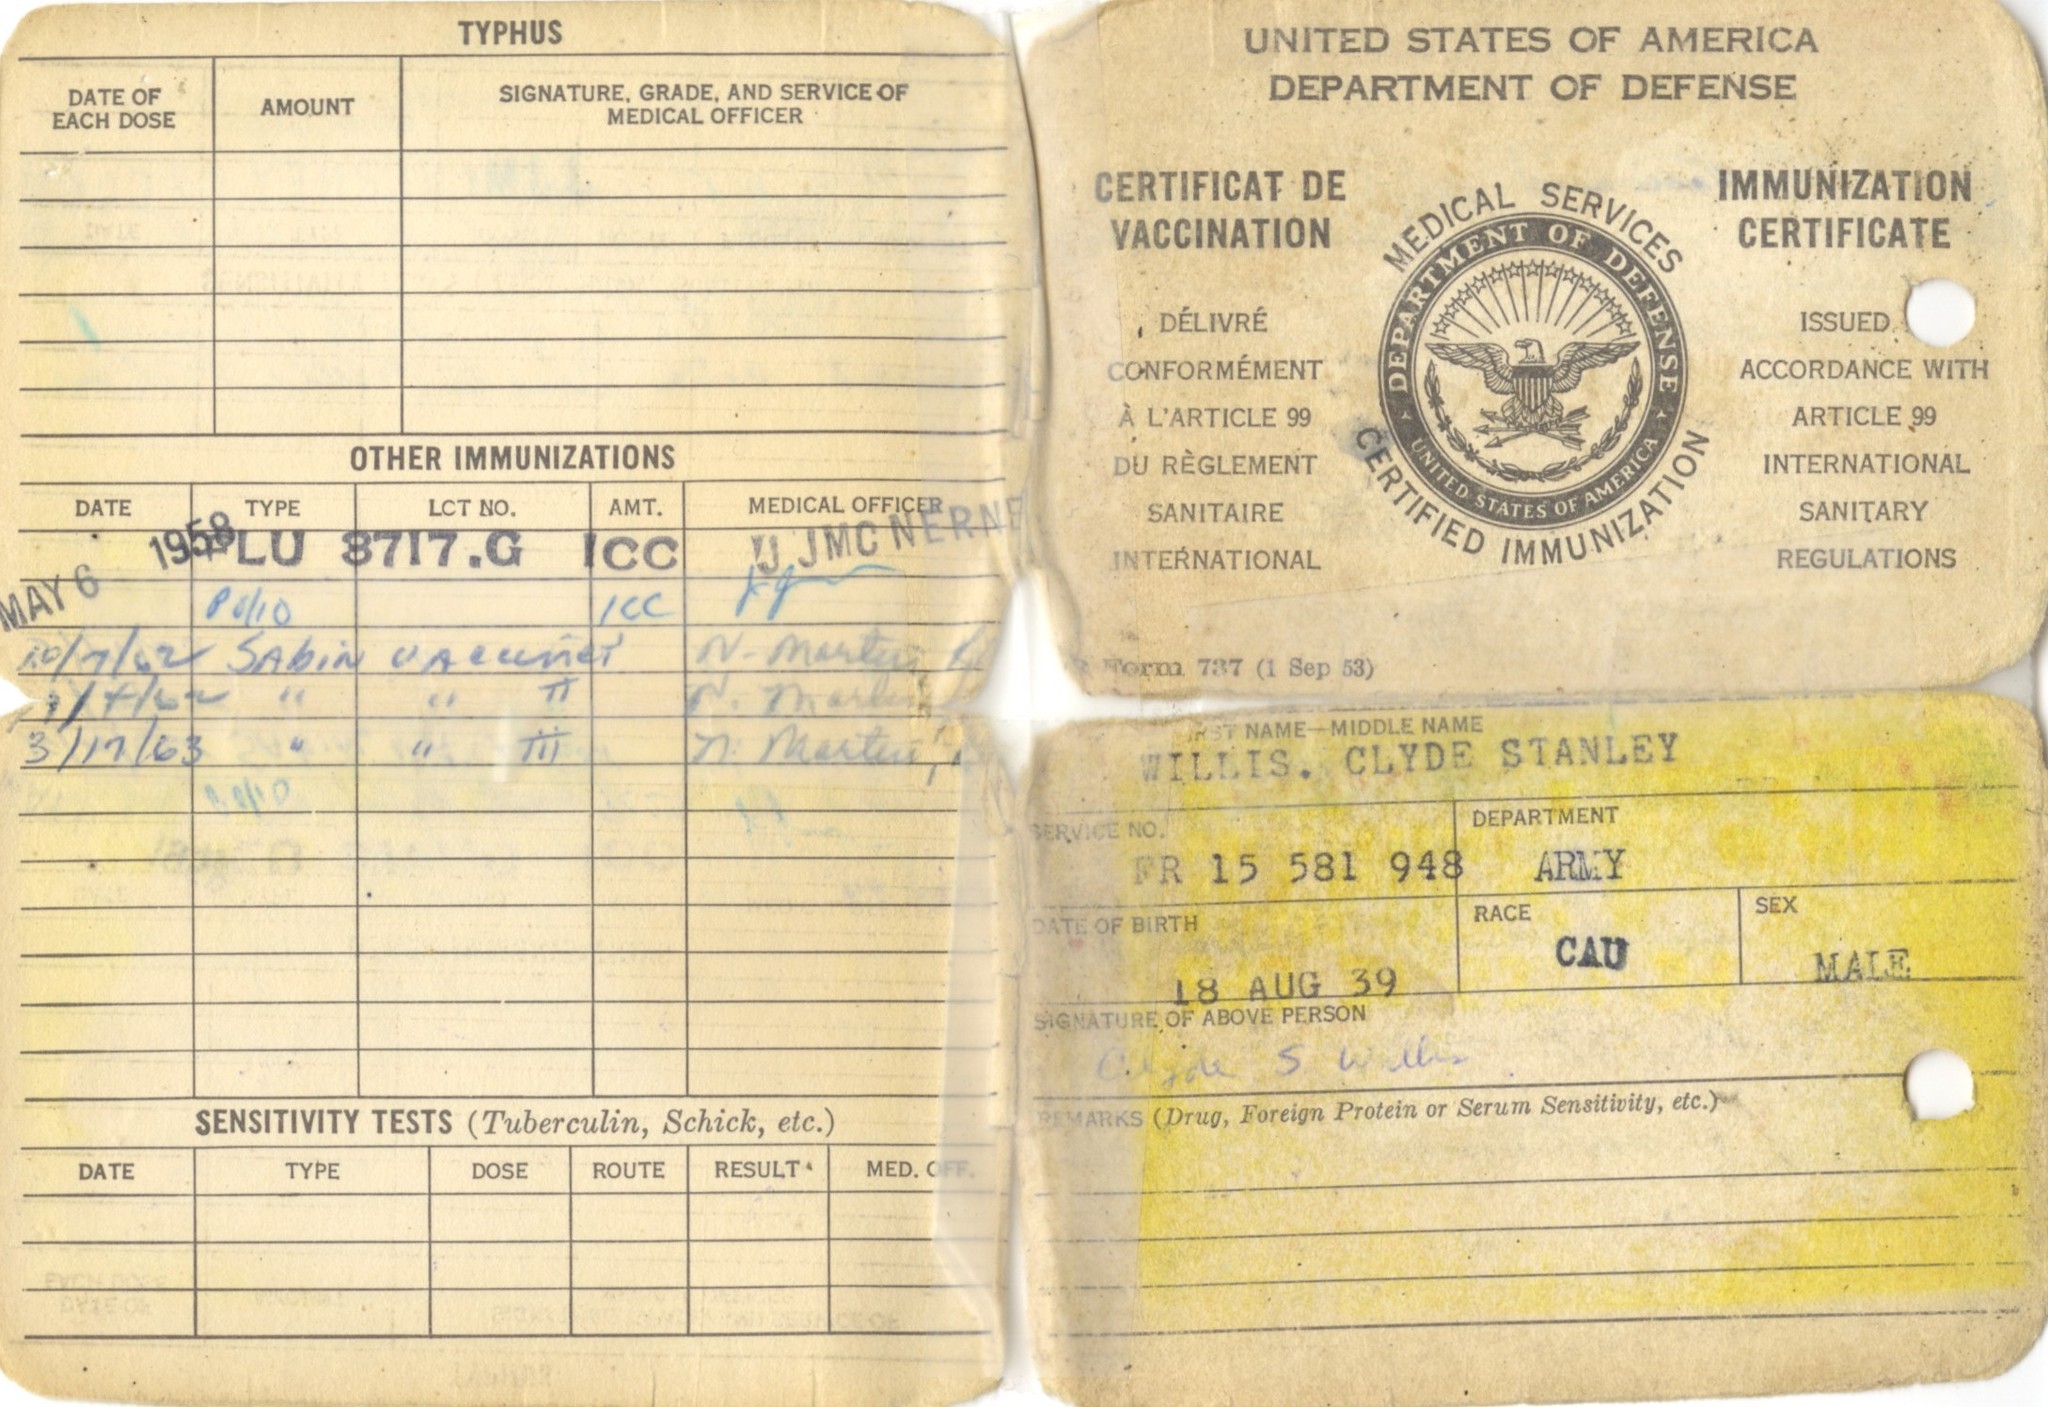 TYPHUS
DATE OF EACH DOSE AMOUNT SIGNATURE, GRADE, AND SERVICE OF MEDICAL OFFICER
OTHER IMMUNIZATIONS
DATE TYPE LCT NO. AMT. MEDICAL OFFICER
MAY 6 1958 FLU 3717.G 1CC JMCNERNE
POLIO 1CC
10/7/62 SABIN VACCINE I N. Martin
/4/62 " " II N. Martin
3/17/63 " " III N. Martin,
SENSITIVITY TESTS (Tuberculin, Schick, etc.)
DATE TYPE DOSE ROUTE RESULT MED. OFF.
UNITED STATES OF AMERICA
DEPARTMENT OF DEFENSE
CERTIFICAT DE
VACCINATION
DÉLIVRÉ
CONFORMÉMENT
À L'ARTICLE 99
DU RÈGLEMENT
SANITAIRE
INTERNATIONAL
MEDICAL SERVICES
DEPARTMENT OF DEFENSE
UNITED STATES OF AMERICA
CERTIFIED IMMUNIZATION
IMMUNIZATION
CERTIFICATE
ISSUED
ACCORDANCE WITH
ARTICLE 99
INTERNATIONAL
SANITARY
REGULATIONS
Form 737 (1 Sep 53)
NAME—MIDDLE NAME
WILLIS. CLYDE STANLEY
SERVICE NO. DEPARTMENT
FR 15 581 948 ARMY
DATE OF BIRTH RACE SEX
18 AUG 39 CAU MALE
SIGNATURE OF ABOVE PERSON
Clyde S Willis
REMARKS (Drug, Foreign Protein or Serum Sensitivity, etc.)